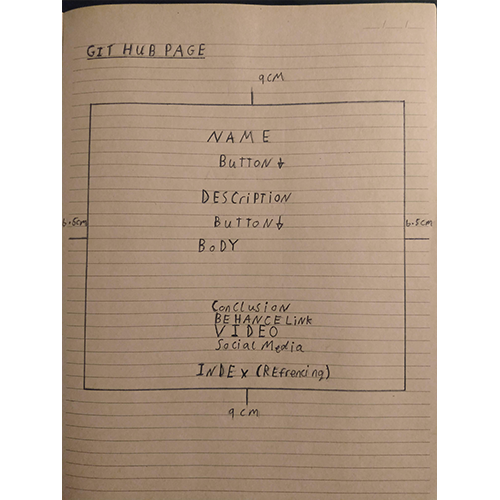 GIT HUB PAGE
9CM
NAME
BUTTON ↓
DESCRIPTION
6.5cm
BUTTON ↓
6.5cm
BODY
Conclusion
BEHANCE Link
VIDEO
Social Media
INDEX (REfrencing)
9CM